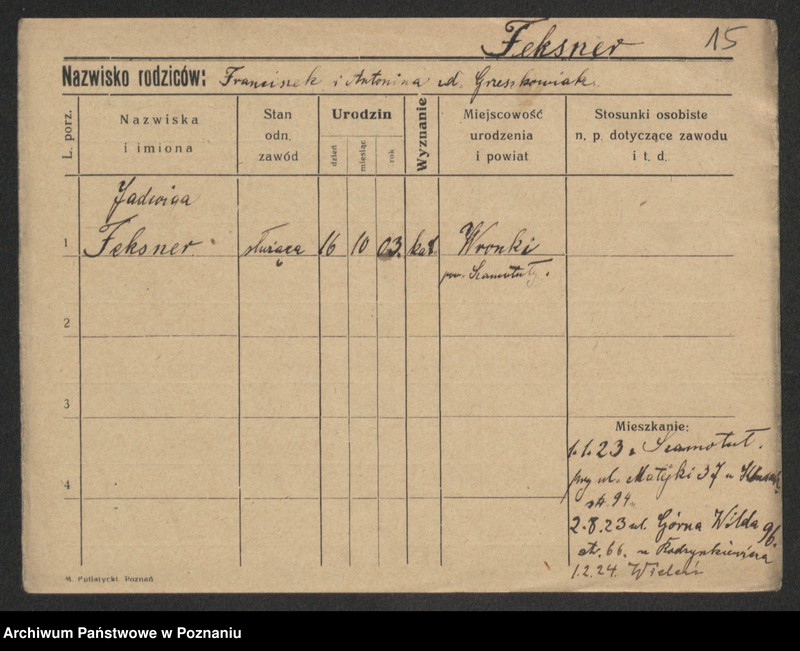 Feksner 15
Nazwisko rodziców: Franciszek i Antonina d. Grzeszkowiak
L. porz.
Nazwiska
i imiona
Stan
odn.
zawód
Urodzin
dzień
miesiąc
rok
Wyznanie
Miejscowość
urodzenia
i powiat
Stosunki osobiste
n. p. dotyczące zawodu
i t. d.
Jadwiga
1 Feksner służąca 16 10 03. kat. Wronki
pow. Szamotuły.
2
3
4
Mieszkanie:
1.1.23 z Szamotuł.
przy ul. Matejki 37 u
str. 94.
2.8.23 ul. Górna Wilda 96.
str. 66. u
1.2.24. Wieleń
M. Putiatycki, Poznań
Archiwum Państwowe w Poznaniu